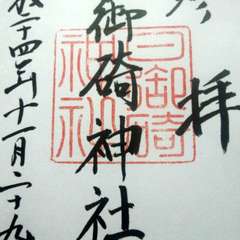 参拝
御碕神社
日御碕神社
成二十四年十一月二十九